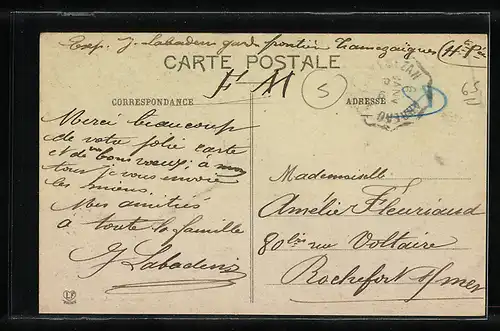 Exp. J. Labadens garde frontière Tramezaïgues (Htes Pées)
CARTE POSTALE
F M
S
CORRESPONDANCE
ADRESSE
Merci beaucoup
de votre jolie carte
et de vos bons voeux, à mon
tour je vous envoie
les miens.
Mes amitiés
à toute la famille
J Labadens
Mademoiselle
Amélie Fleuriaud
80 bis rue Voltaire
Rochefort s/mer